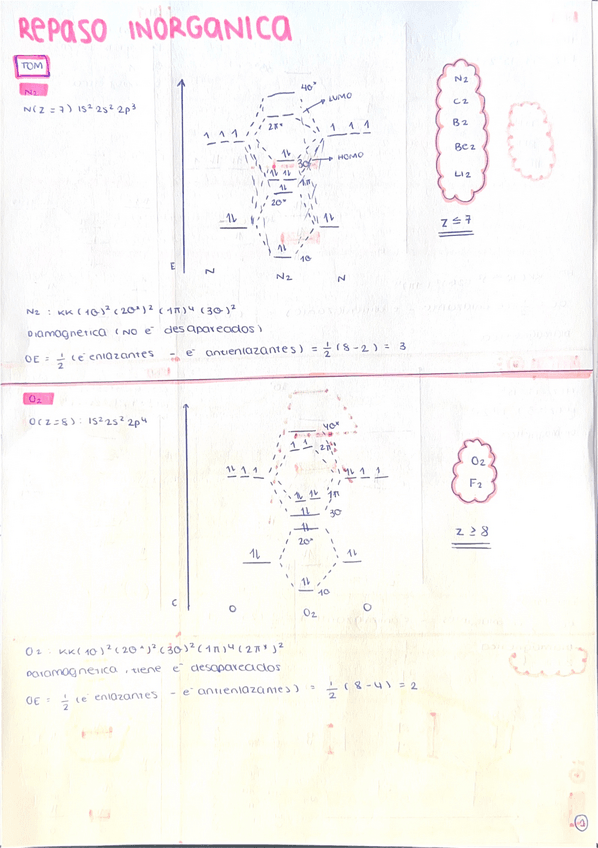 REPASO INORGANICA
TOM
N2
N(Z=7) 1s² 2s² 2p³
4σ*
LUMO
2π*
1 1 1
1 1 1
1l
3σ
HOMO
1l 1l
1π
1l
2σ*
1l
1l
1l
1σ
E
N
N2
N
N2
C2
B2
Be2
Li2
Z ≤ 7
N2 : KK (1σ)² (2σ*)² (1π)⁴ (3σ)²
Diamagnetica (NO e⁻ desapareados)
OE = 1/2 (e⁻ enlazantes - e⁻ antienlazantes) = 1/2 (8-2) = 3
O2
O(Z=8) : 1s² 2s² 2p⁴
4σ*
1 1
2π*
1l 1 1
1l 1 1
1l 1l
1π
1l
3σ
1l
2σ*
1l
1l
1l
1σ
O
O2
O
O2
F2
Z ≥ 8
O2 : KK (1σ)² (2σ*)² (3σ)² (1π)⁴ (2π*)²
paramagnetica, tiene e⁻ desapareados
OE = 1/2 (e⁻ enlazantes - e⁻ antienlazantes) = 1/2 (8-4) = 2